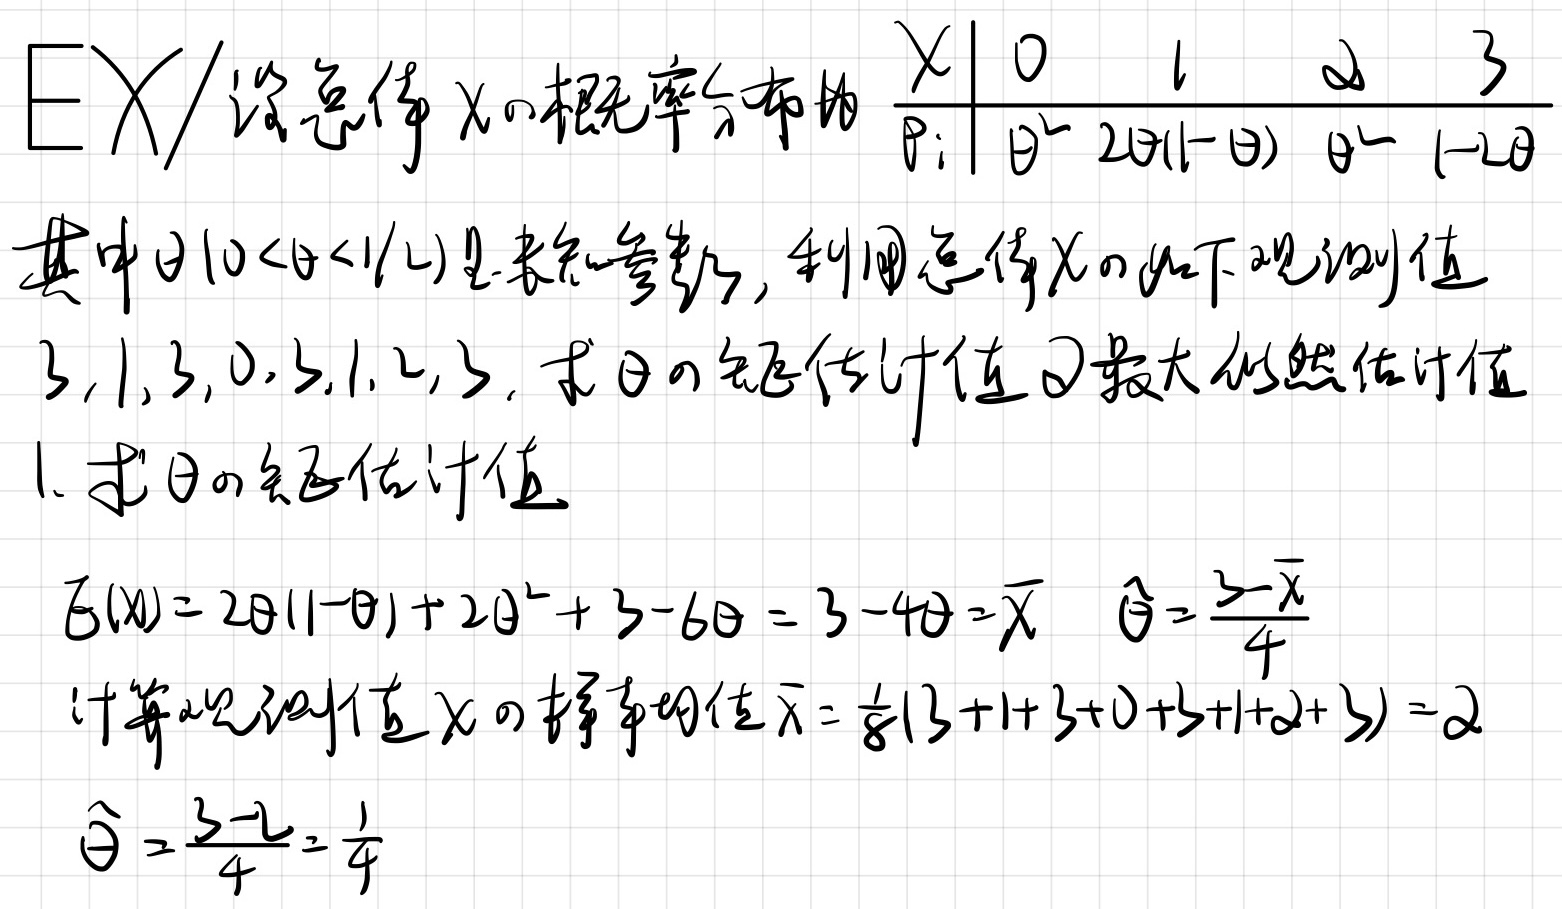 EX/设总体X的概率分布为 X 0 1 2 3
Pi θ² 2θ(1-θ) θ² 1-2θ
其中θ(0<θ<1/2)是未知参数,利用总体X的如下观测值
3,1,3,0,3,1,2,3,求θの矩估计值及最大似然估计值
1.求θの矩估计值
E(X)=2θ(1-θ)+2θ²+3-6θ=3-4θ=X̄ θ̂=(3-X̄)/4
计算观测值Xの样本均值x̄=1/8(3+1+3+0+3+1+2+3)=2
θ̂=(3-2)/4=1/4